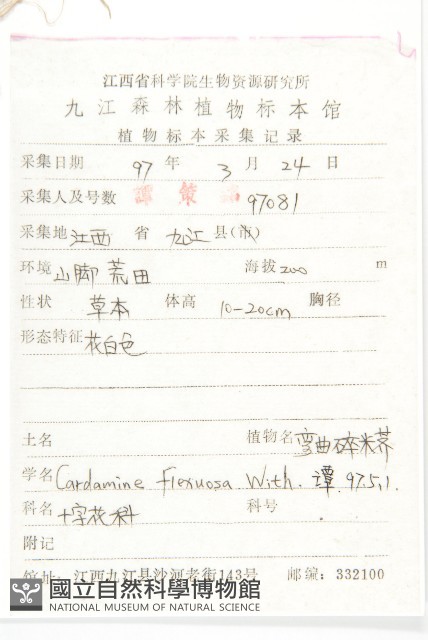 江西省科学院生物资源研究所
九江森林植物标本馆
植物标本采集记录
采集日期 97 年 3 月 24 日
采集人及号数 谭策铭 97081
采集地 江西 省 九江 县(市)
环境 山脚荒田 海拔 200 m
性状 草本 体高 10-20cm 胸径
形态特征 花白色
土名 植物名 弯曲碎米荠
学名 Cardamine flexuosa With. 谭. 97.5.1.
科名 十字花科 科号
附记
馆址: 江西九江县沙河老街143号 邮编: 332100
國立自然科學博物館
NATIONAL MUSEUM OF NATURAL SCIENCE